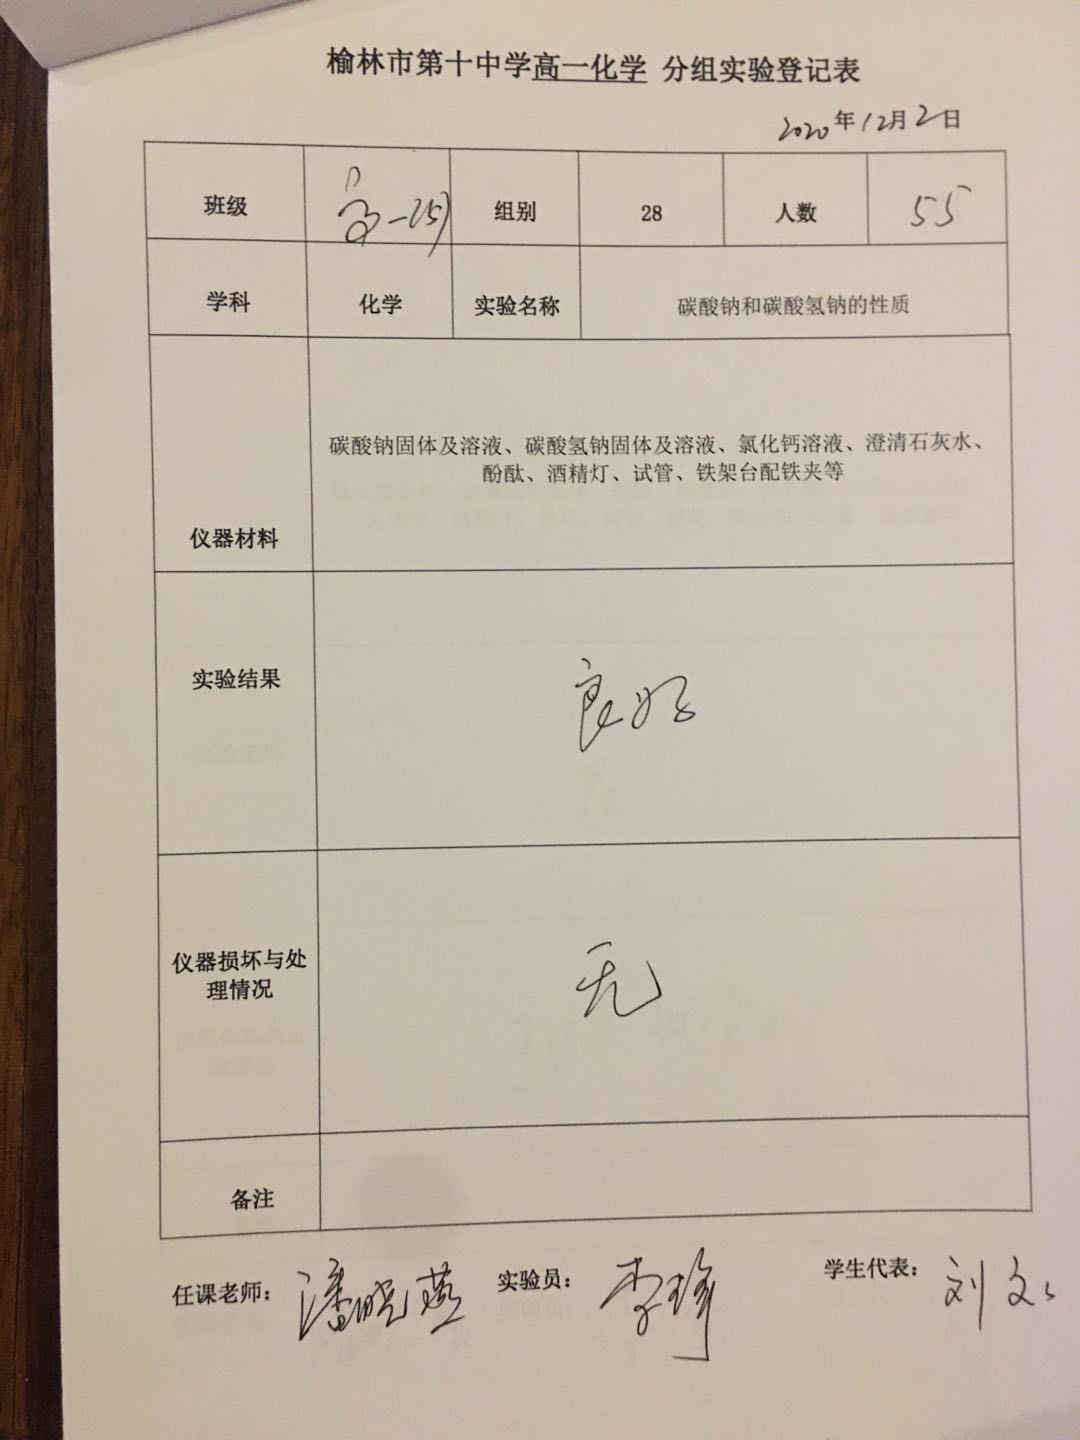 榆林市第十中学高一化学 分组实验登记表
2020年12月2日
班级 高一(5) 组别 28 人数 55
学科 化学 实验名称 碳酸钠和碳酸氢钠的性质
碳酸钠固体及溶液、碳酸氢钠固体及溶液、氯化钙溶液、澄清石灰水、
酚酞、酒精灯、试管、铁架台配铁夹等
仪器材料
实验结果 良好
仪器损坏与处
理情况
无
备注
任课老师：潘晓燕 实验员：李 学生代表：刘文